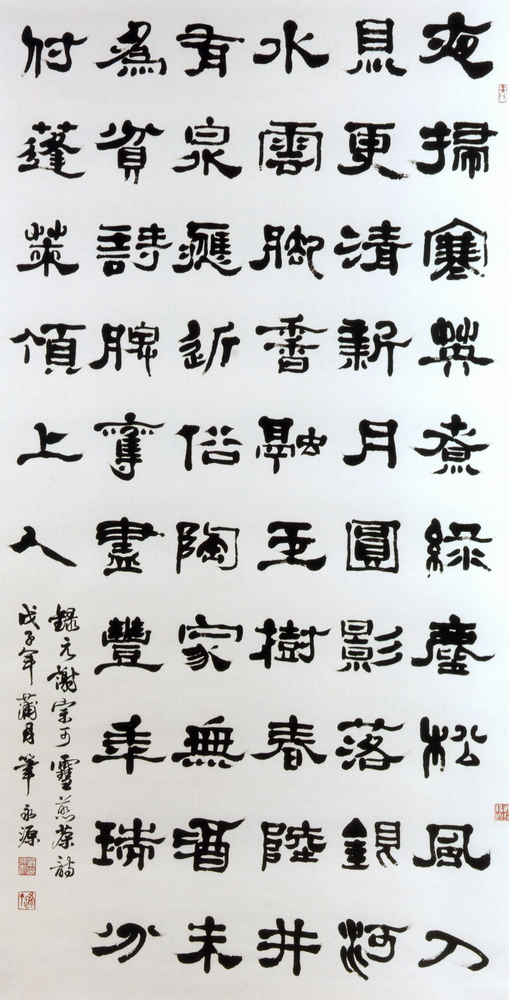 夜掃寒英煮綠塵松風入
鼎更清新月圓影落銀河
水雲脚香融玉樹春陸井
有泉應近俗陶家無酒未
為貧詩脾奪盡豐年瑞分
付蓬萊頂上人
錄元謝宗可雪煎茶詩
戊子年蒲月筆永源